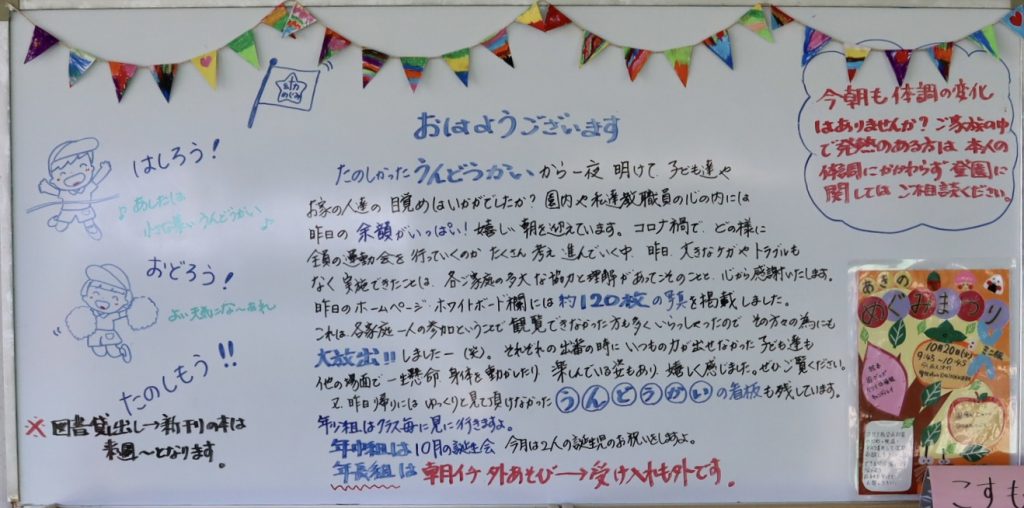 おはようございます
たのしかった うんどうかい から一夜 明けて 子ども達や
お家の人達の 目覚めはいかがでしたか? 園内や私達教職員の心の内には
昨日の 余韻がいっぱい! 嬉しい 朝を迎えています。コロナ禍で、どの様に
全員の運動会を 行っていくのか たくさん 考え 進んでいく中、昨日、大きなケガやトラブルも
なく 実施できたことは、各ご家庭の多大な協力と理解があってこそのことと、心から感謝いたします。
昨日のホームページ・ホワイトボード欄には 約120枚の写真を掲載しました。
これは、各家庭一人の参加ということで 観覧できなかった方も多くいらっしゃったので その方々の為にも
大放出!! しましたー(笑)。それぞれの出番の時に いつもの力が出せなかった 子ども達も
他の場面で 一生懸命 身体を動かしたり 楽しんでいる姿もあり 嬉しく感じました。ぜひご覧ください。
又、昨日帰りには ゆっくりと見て頂けなかった うんどうかい の看板も残しています。
年少組はクラス毎に見に行きますよ。
年中組は 10月の誕生会 今月は2人の誕生児のお祝いをしますよ。
年長組は 朝イチ 外あそび→受け入れも外です。
はしろう!
♪あしたは
たのしい うんどうかい ♪
おどろう!
よい天気になーあれ
たのしもう!!
※図書貸出し→新刊の本は
来週〜となります。
今朝も体調の変化
はありませんか? ご家族の中
で発熱のある方は 本人の
体調にかかわらず 登園に
関しては ご相談ください。
あきの
めぐみまつり
10月20日
9:45〜10:45
こすも